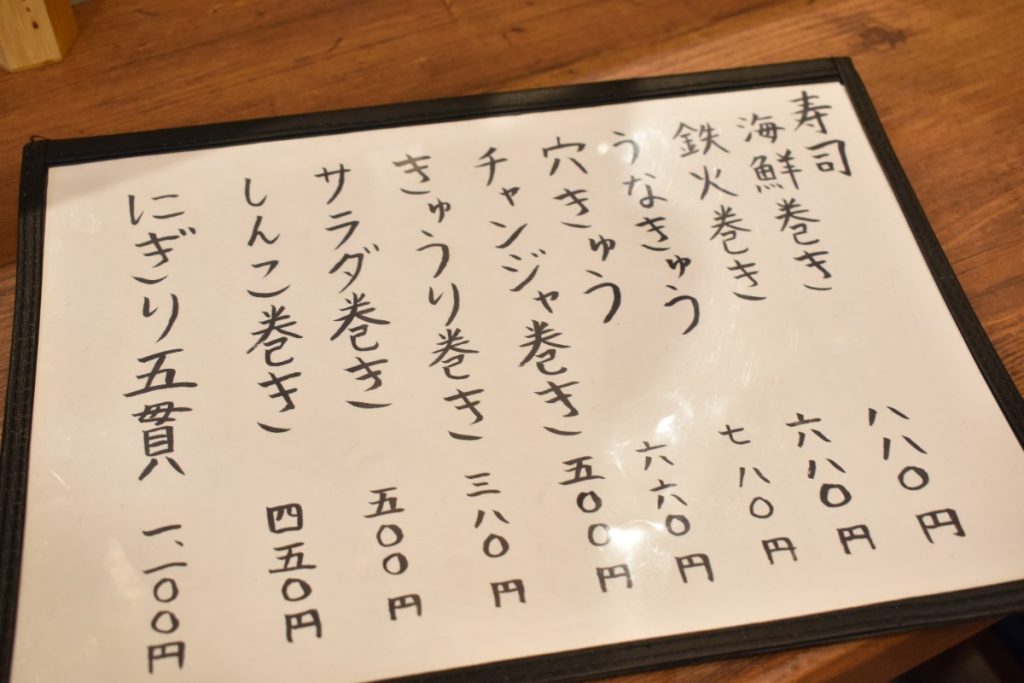 寿司
海鮮巻き 八八〇円
鉄火巻き 六八〇円
うなきゅう 七八〇円
穴きゅう 六六〇円
チャンジャ巻き 五〇〇円
きゅうり巻き 三八〇円
サラダ巻き 五〇〇円
しんこ巻き 四五〇円
にぎり五貫 一、一〇〇円